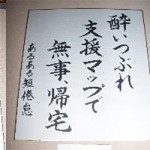 酔いつぶれ
支援マップで
無事、帰宅
あるある短倦怠